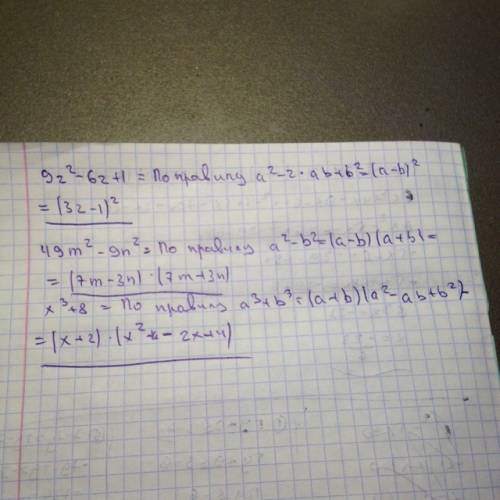 9z² - 6z + 1 = По правилу a² - 2 · ab + b² = (a - b)²
= (3z - 1)²
49m² - 9n² = По правилу a² - b² = (a - b)(a + b) =
= (7m - 3n) · (7m + 3n)
x³ + 8 = По правилу a³ + b³ = (a + b)(a² - ab + b²) =
= (x + 2) · (x² - 2x + 4)